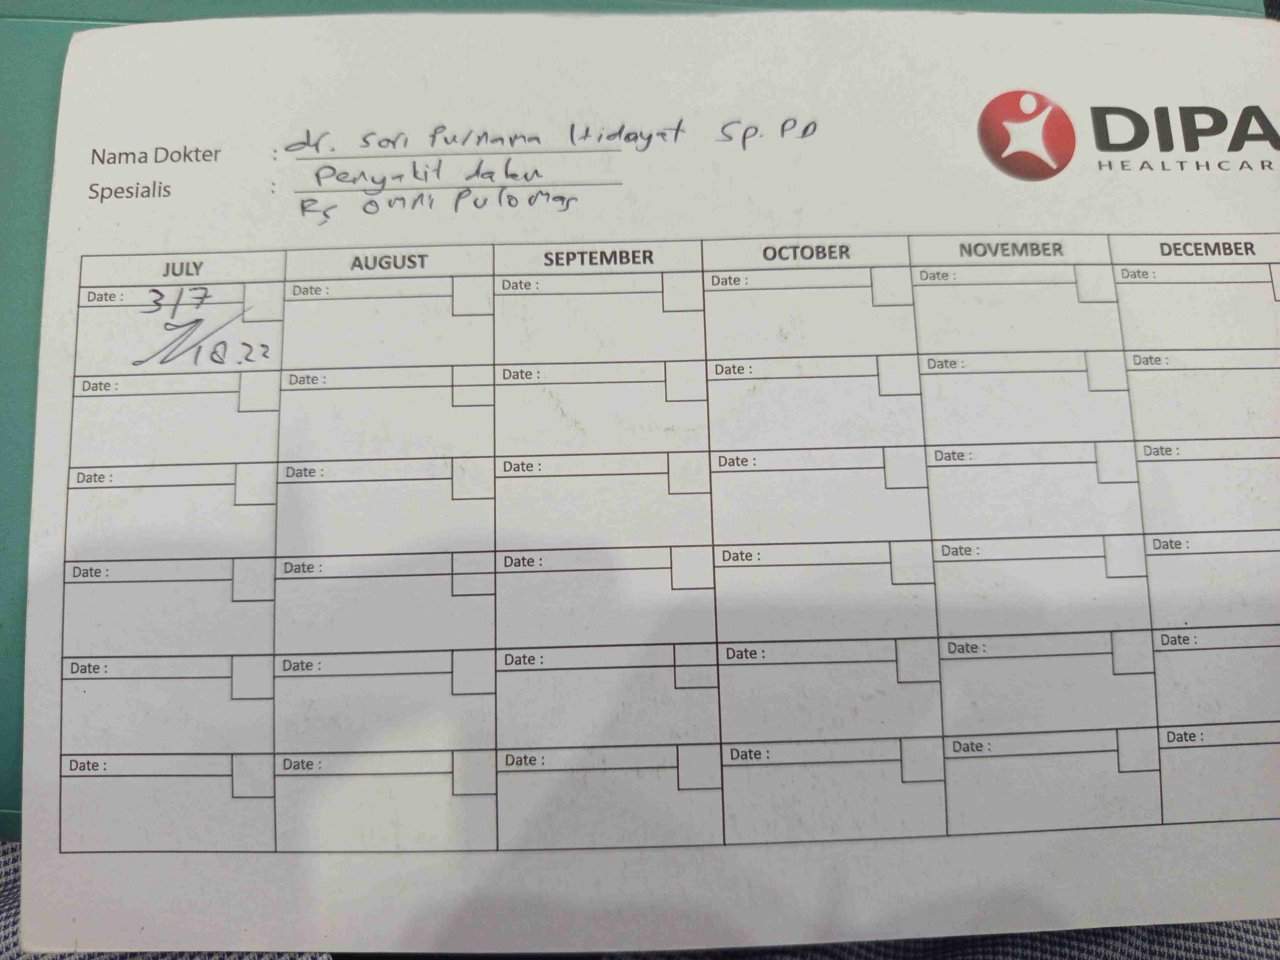 DIPA
HEALTHCAR
Nama Dokter : dr. Sori Purnama Hidayat Sp. PD
Spesialis : Penyakit dalam
RS OMNI Pulomas
JULY AUGUST SEPTEMBER OCTOBER NOVEMBER DECEMBER
Date : 3/7 Date : Date : Date : Date : Date :
18.22
Date : Date : Date : Date : Date : Date :
Date : Date : Date : Date : Date : Date :
Date : Date : Date : Date : Date : Date :
Date : Date : Date : Date : Date : Date :
Date : Date : Date : Date : Date : Date :